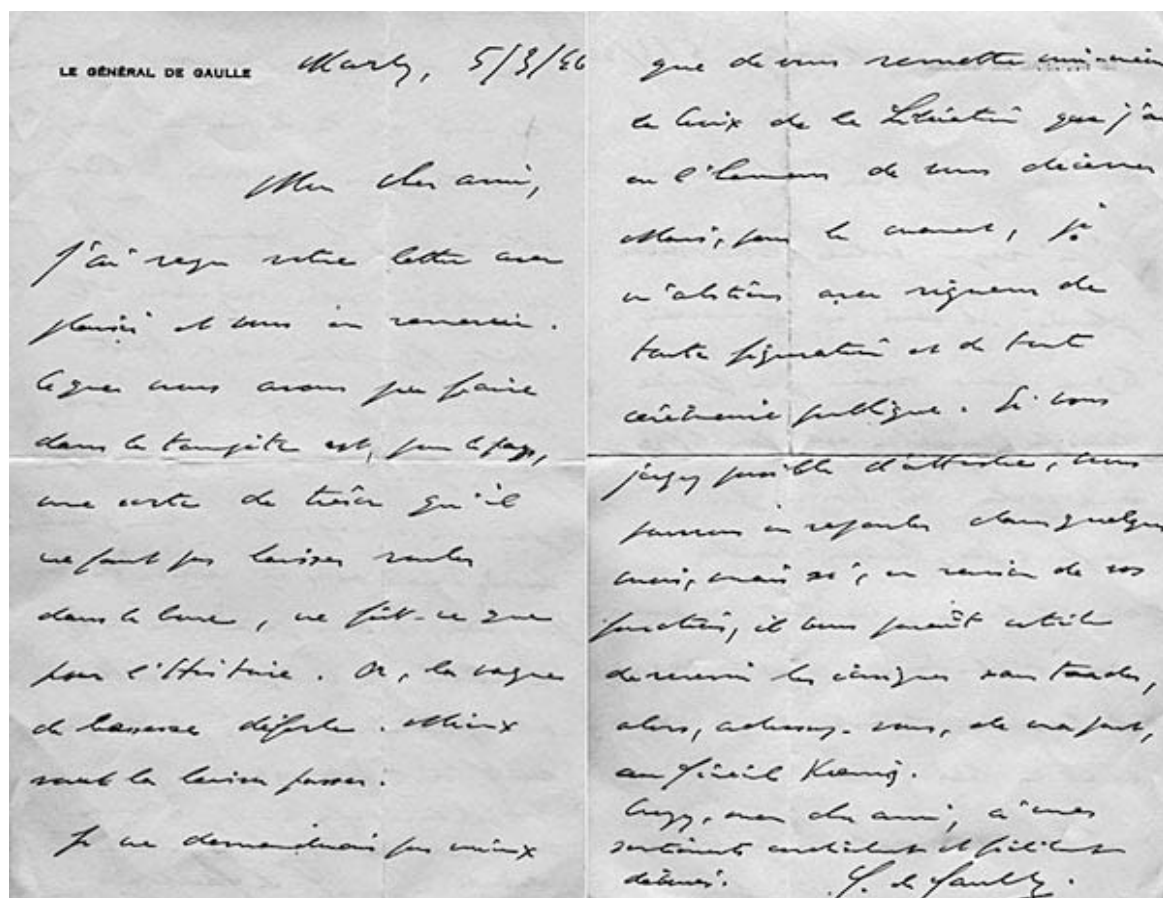 LE GÉNÉRAL DE GAULLE
Marly, 5/3/46
Mon cher ami,
J'ai reçu votre lettre avec
plaisir et vous en remercie.
Ce que nous avons pu faire
dans la tempête est, pour le pays,
une sorte de trésor qu'il
ne faut pas laisser rouler
dans la boue, ne fût-ce que
pour l'Histoire. Or, la vague
de bassesse déferle. Mieux
vaut la laisser passer.
Je ne demanderais pas mieux
que de vous remettre
la Croix de la Libération que j'ai
eu l'honneur de vous décerner
Mais, pour le moment, je
m'abstiens avec rigueur de
toute figuration et de toute
cérémonie publique. Si vous
jugez possible d'attendre, nous
pourrons en reparler dans quelques
mois, mais si, en raison de vos
fonctions, il vous paraît utile
de recevoir les insignes sans tarder,
alors, adressez-vous, de ma part,
au Général Koenig.
Croyez, mon cher ami, à mes
sentiments cordialement et fidèlement
dévoués. C. de Gaulle.